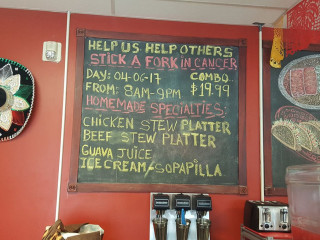 HELP US HELP OTHERS
STICK A FORK IN CANCER
DAY: 04-06-17 COMBO
FROM: 8AM-9PM $19.99
HOMEMADE SPECIALTIES:
CHICKEN STEW PLATTER
BEEF STEW PLATTER
GUAVA JUICE
ICE CREAM-SOPAPILLA